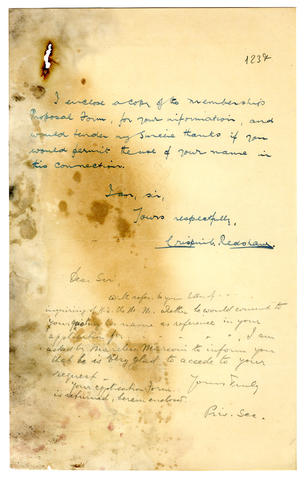 1234
I enclose a copy of the membership
Proposal Form, for your information, and
would tender my sincere thanks if you
would permit the use of your name in
this connection.
I am, sir,
Yours respectfully,
Redshaw
Dear Sir
With refer. to your letter of
inquiring if H.E. the M. would consent to
your name as reference in your
application for I am
asked by Marconi to inform you
that he is very glad to accede to your
request. Yours truly
Your application form
is returned, herein enclosed.
Priv. Sec.